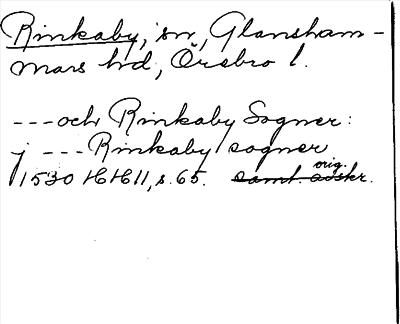 Rinkaby, sn, Glansham-
mars hd, Örebro l.
---och Rinkaby Sogner:
j --- Rinkaby sogner
orig.
1530 HH II, s. 65. samt. avskr.